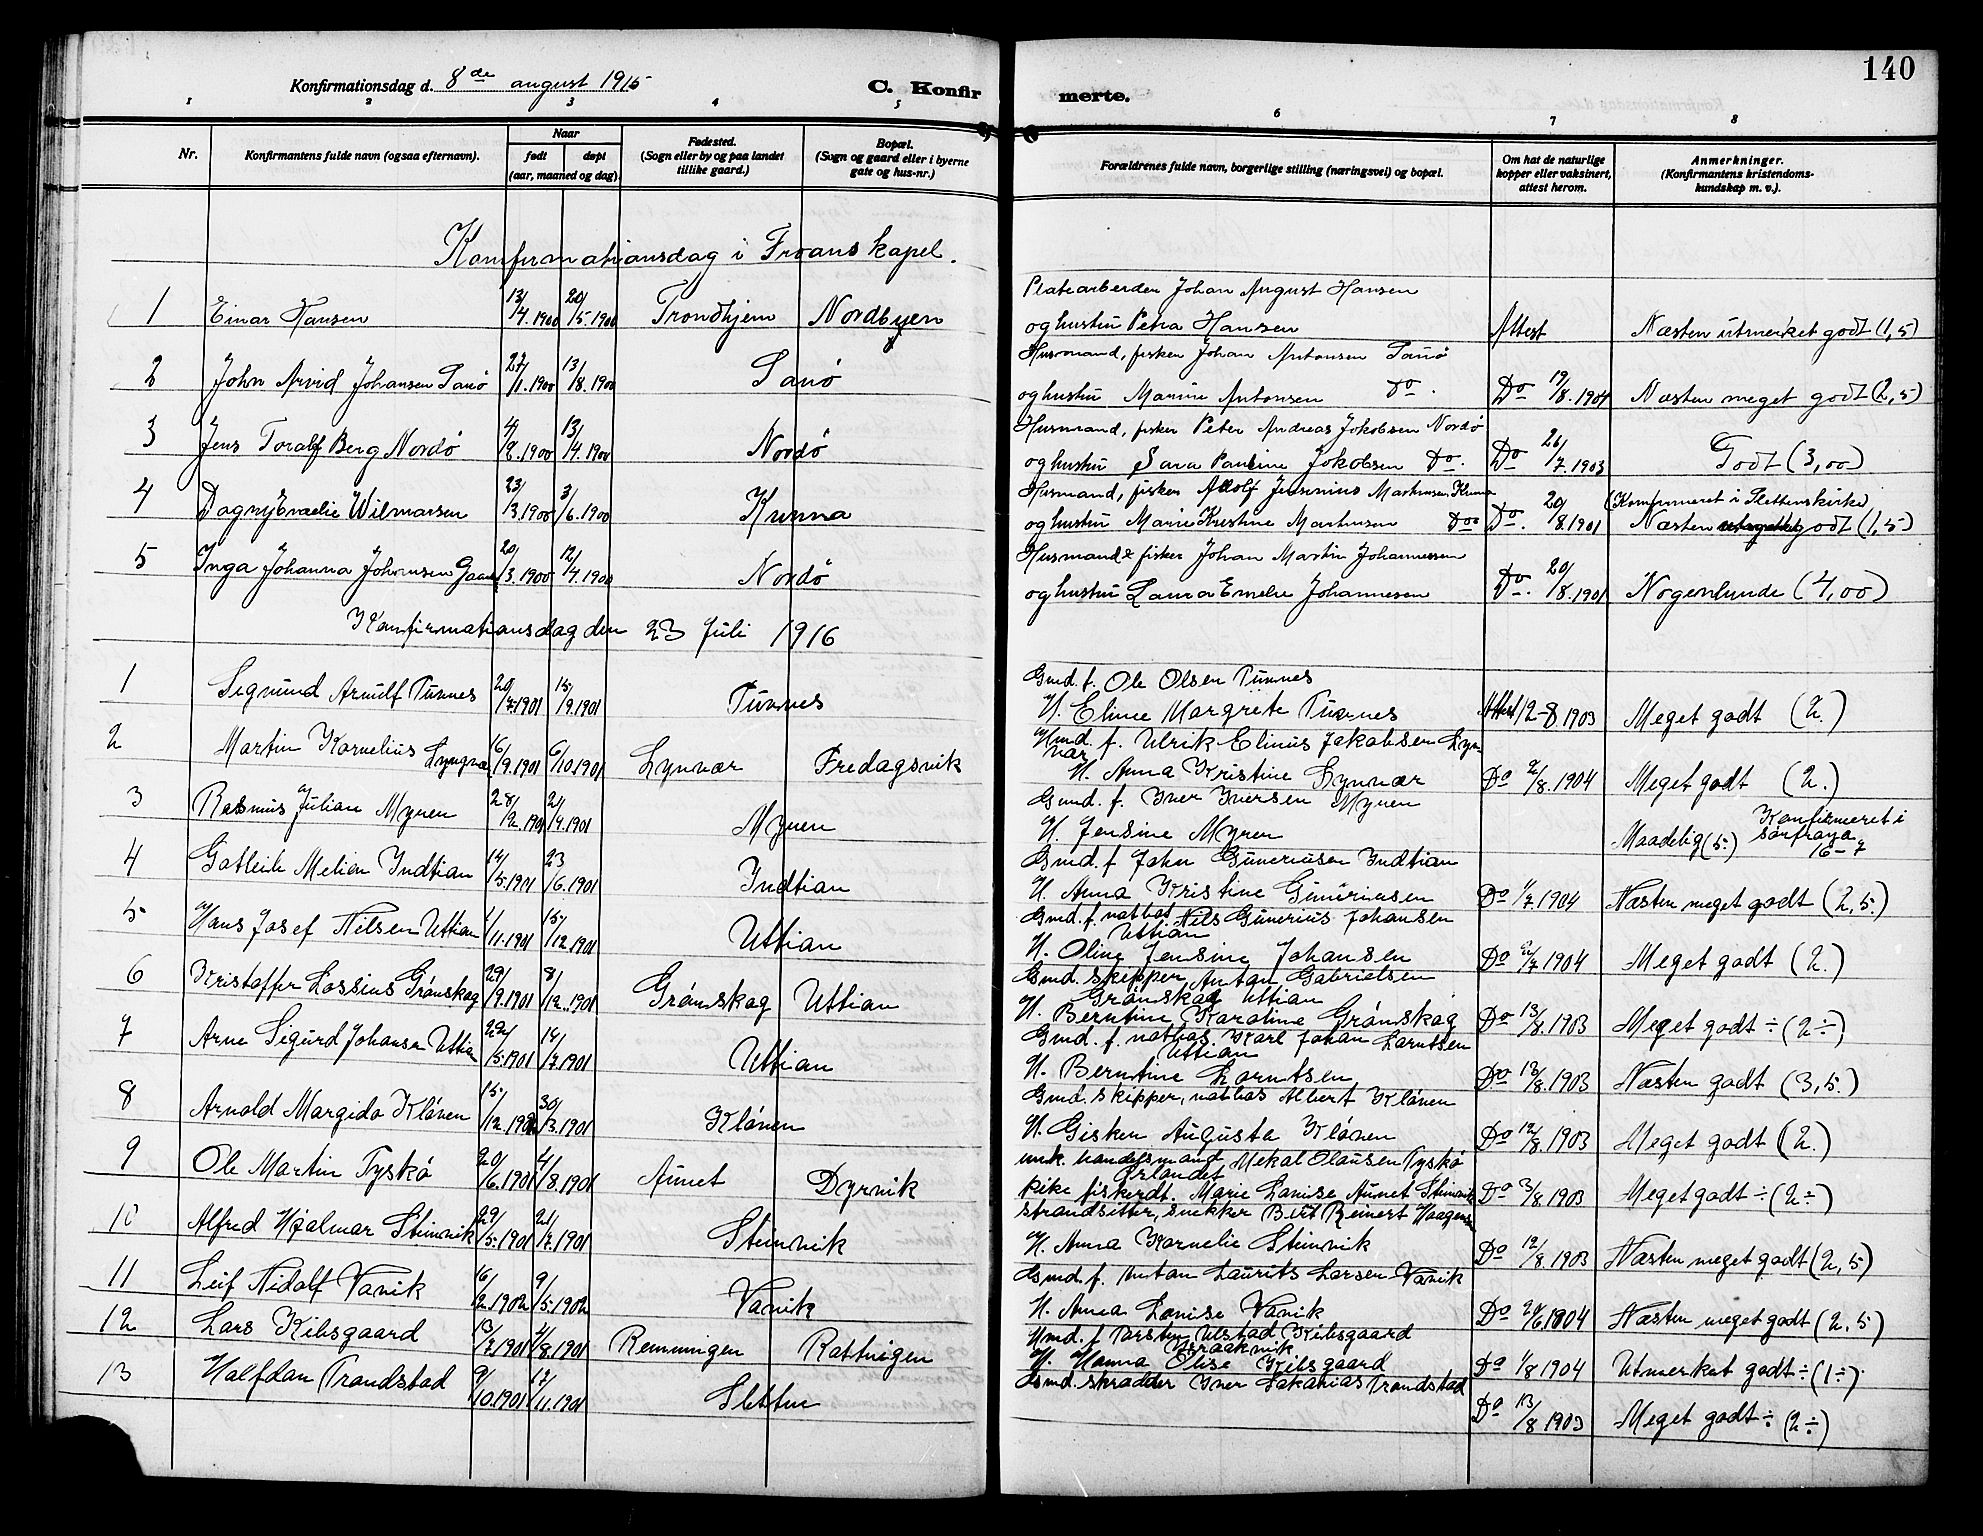 140
Konfirmationsdag d. 8de august 1915
C. Konfirmerte.
1 2 3 4 5 6 7 8
Nr.
Konfirmantens fulde navn (ogsaa efternavn).
Naar
født døpt
(aar, maaned og dag)
Fødested.
(Sogn eller by og paa landet
tillike gaard.)
Bopæl.
(Sogn og gaard eller i byerne
gate og hus-nr.)
Forældrenes fulde navn, borgerlige stilling (næringsvei) og bopæl.
Om hat de naturlige
kopper eller vaksinert,
attest herom.
Anmerkninger.
(Konfirmantens kristendoms-
kundskap m. v.).
Konfirmationsdag i Froans kapel.
Platearbeider Johan August Hansen
1 Einar Hansen 13/4.1900 20/5.1900 Trondhjem Nordbyen og hustru Petra Hansen Attest Næsten utmerket godt (1,5)
Husmand, fisker Johan Antonsen Sanø
2 John Arvid Johansen Sanø 27/1.1900 13/8.1900 Sanø og hustru Marine Antonsen Do. Do 19/8.1904 Næsten meget godt (2,5)
Husmand, fisker Peter Andreas Jakobsen Nordø
3 Jens Toralf Berg Nordø 4/2.1900 13/4.1900 Nordø og hustru Sara Pauline Jakobsen Do. Do 26/7.1903 Godt (3,00)
Husmand, fisker Adolf Jensenius Martinusen Kunna (Konfirmeret i Slettenskirke)
4 Dagny Emelie Wilmarsen 23/3.1900 3/6.1900 Kunna og hustru Marie Kristine Martinsen Do Do. 20/8.1901 Næsten godt (1,5)
Husmand & fisker Johan Martin Johannessen
5 Inga Johanna Johansen 20/3.1900 12/4.1900 Nordø og hustru Laura Emelie Johannesen Do. 20/8.1901 Nogenlunde (4,00)
Konfirmationsdag den 23 Juli 1916
Gmd. f. Ole Olsen Tuvnes
1 Sigmund Arnulf Tuvnes 20/7.1901 15/9.1901 Tuvnes H. Eline Margrete Tuvnes Attest 12-8.1903 Meget godt (2.)
Hmd. f. Ulrik Elinus Jakobsen Lyn
vær
2 Martin Kornelius Lyngvær 16/9.1901 6/10.1901 Lynvær Fredagsvik H. Anna Kristine Lynvær Do 2/8.1904 Meget godt (2.)
Gmd. f. Iver Iversen Myren
3 Rasmus Julian Myren 28/2.1901 21/4.1901 Myren H. Jensine Myren Maadelig (5) Konfirmeret i
sørfrøya
16-7
Gmd. f John Guneriusen Indtian
4 Gotleih Melian Indtian 14/5.1901 23/6.1901 Indtian H. Anna Kristine Guneriusen Do 1/7.1904 Næsten meget godt (2,5.)
Gmd. f. notbas Nils Gunerius Johansen
Uttian
5 Hans Josef Nilsen Uttian 1/11.1901 15/12.1901 Uttian H. Oline Jensine Johansen Do 2/7 1904 Meget godt (2.)
Gmd. skipper Anton Gabrielsen
Grønskag Uttian
6 Kristoffer Lossius Grønskag 29/9.1901 8/12.1901 Grønskag Uttian H. Berntine Karoline Grønskag Do 13/8.1903 Meget godt ÷ (2 ÷)
Gmd. f. notbas. Karl Johan Larntsen
Uttian
7 Arne Sigurd Johansen Uttian 22/5.1901 14/7.1901 Uttian H. Berntine Lorntsen Do 13/8.1903 Næsten godt (3,5.)
Gmd. skipper, notbas Albert Kløven
8 Arnold Margido Kløven 15/12.190 30/3.1901 Kløven H. Gisken Augusta Kløven Do 12/8.1903 Meget godt (2.)
unk. handelsmand Mekal Olausen Tyskø
Ørlandet
9 Ole Martin Tyskø 20/6.1901 4/8.1901 Aunet Dyrvik pike fiskerdt. Marie Lovise Aunet Steinvik Do 3/8.1903 Meget godt ÷ (2 ÷)
strandsitter, snekker Bert Reinert Haagensen
10 Alfred Hjalmar Steinvik 29/5.1901 21/7.1901 Steinvik H. Anna Kornelie Steinvik Do 12/8.1903 Næsten meget godt (2,5)
Gmd. f. Anton Laurits Larsen Vavik
11 Leif Nidolf Vavik 16/2.1902 9/5.1902 Vavik H. Anna Lovise Vavik Do 20/6.1904 Næsten meget godt (2.5)
Hmd. f Torsten Ulstad Kilsgaard
12 Lars Kilsgaard 13/7.1901 4/8.1901 Remmingen Rottingen H. Hanna Olise Kilsgaard Do 1/8 1904 Utmerket godt ÷ (1 ÷)
Gmd. skrædder Iver Sakarias Trondstad
13 Halfdan Trondstad 9/10.1901 17/11.1901 Sletten Do 13/8 1903 Meget godt ÷ (2 ÷)